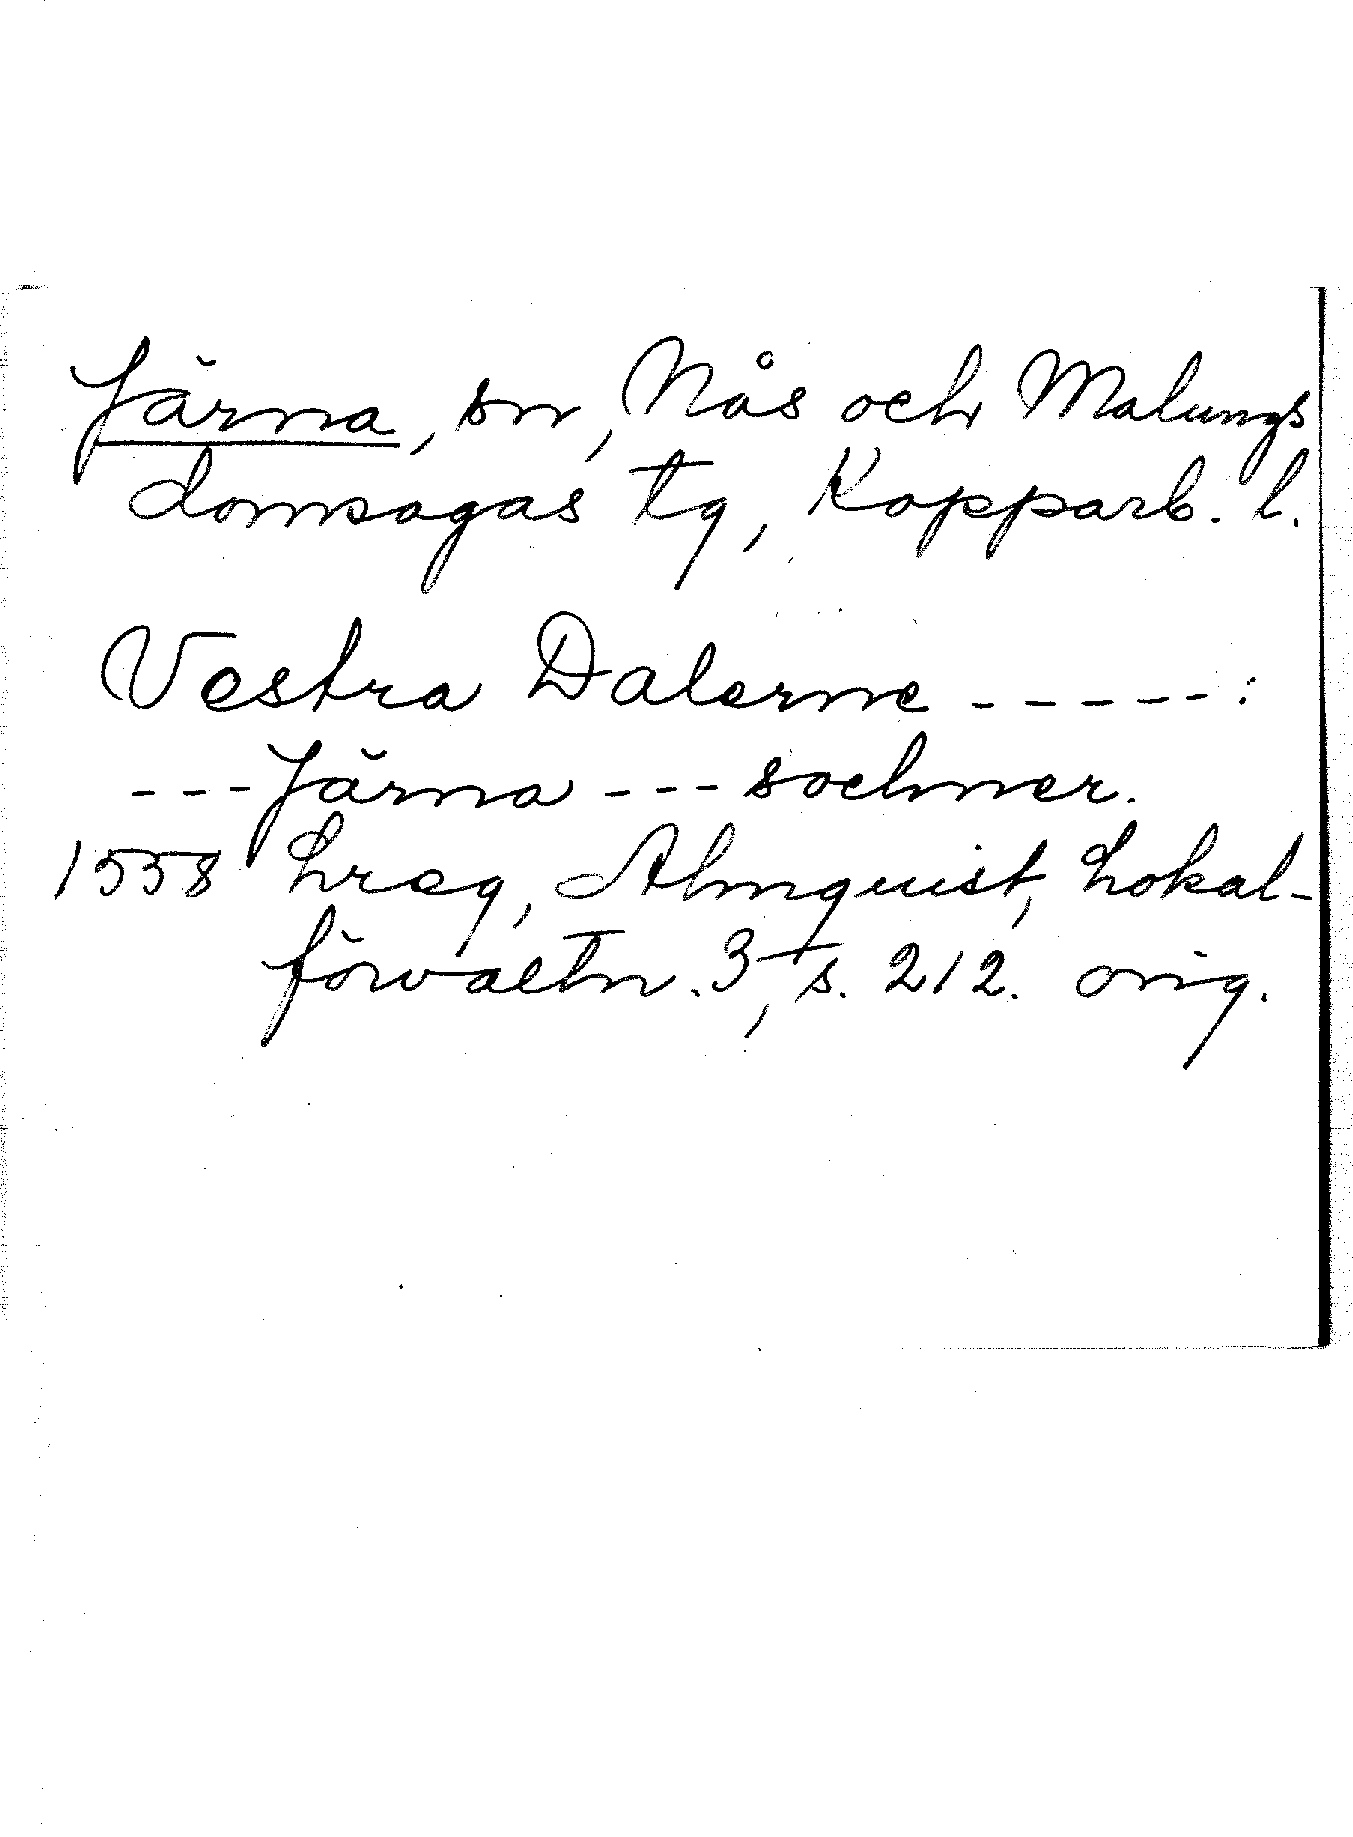 Järna, sn, Nås och Malungs
domsagas tg, Kopparb. l.
Vestra Dalerne - - - - - :
- - - Järna - - - sochner.
1558 Lreg, Almquist, Lokal-
förvaltn. 3, s. 212. orig.